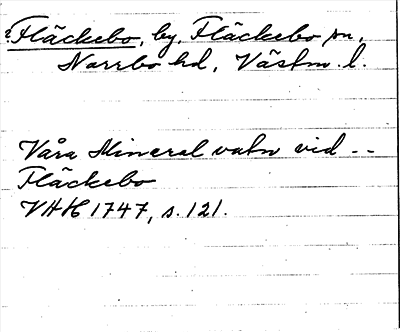 Fläckebo, by, Fläckebo sn,
Norrbo hd, Västm. l.
Våra Mineral vatn vid --
Fläckebo
VHH 1747, s. 121.